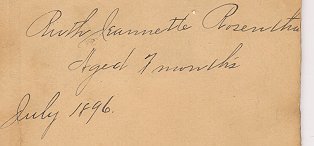 Ruth Jeannette Rosentha
Aged 7 months
July 1896.